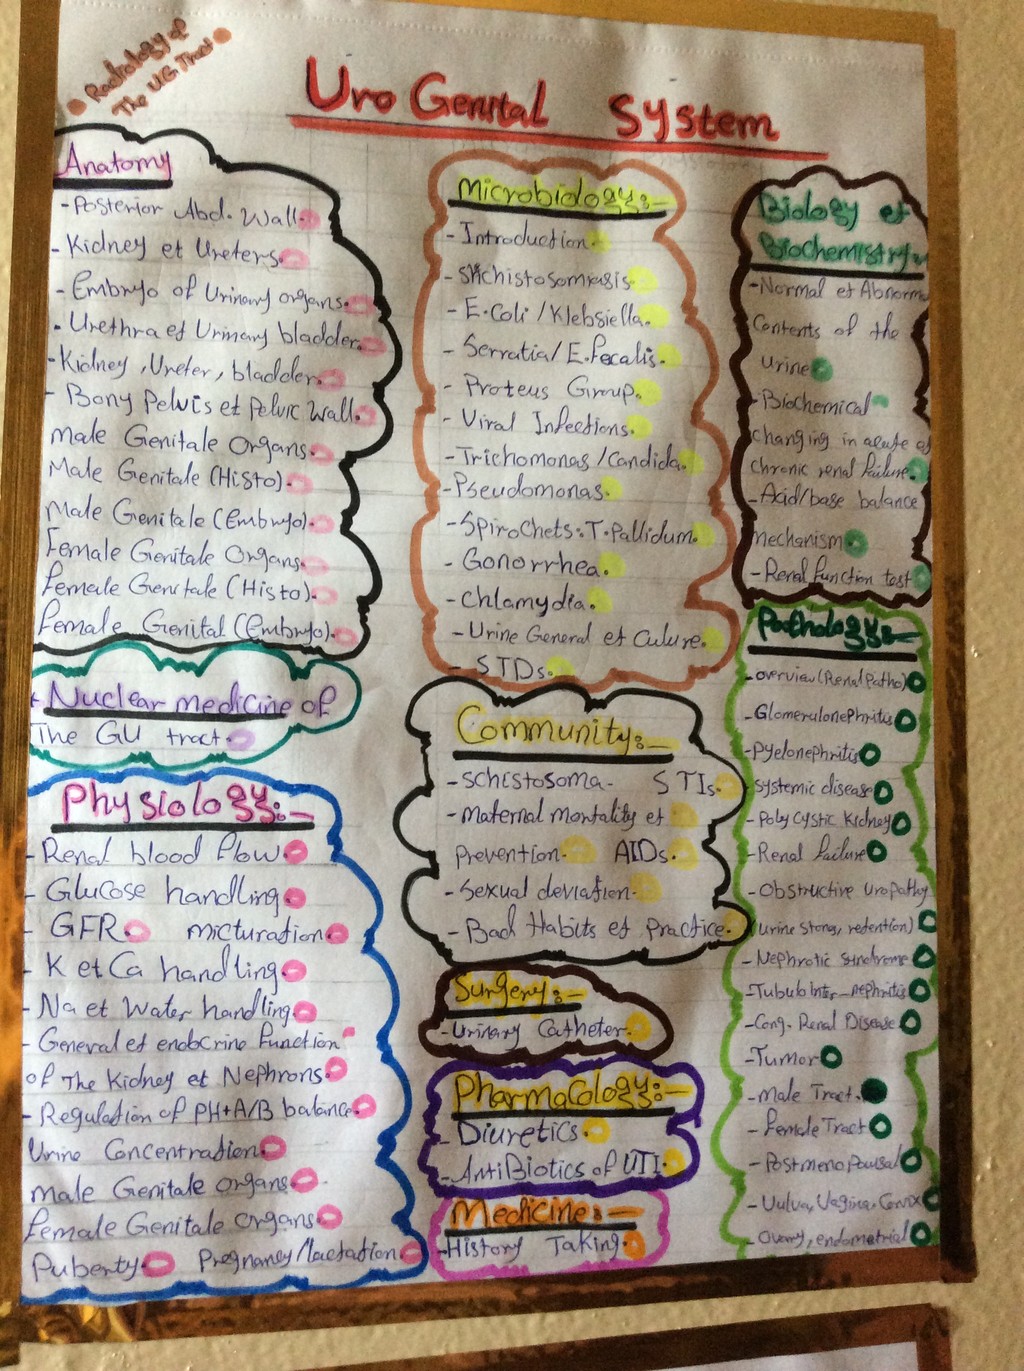 Radiology of
The UG Tract
Uro Genital System
Anatomy
- Posterior Abd. Wall
- Kidney et Ureters
- Embryo of Urinary organs.
- Urethra et Urinary bladder.
- Kidney, Ureter, bladder.
- Bony Pelvis et Pelvic Wall.
Male Genitale Organs.
Male Genitale (Histo).
Male Genitale (Embryo).
Female Genitale Organs.
Female Genitale (Histo).
Female Genital (Embryo).
Nuclear medicine of
The GU tract.
Physiology:-
- Renal blood flow
- Glucose handling.
- GFR. micturation.
- K et Ca handling.
- Na et Water handling.
- General et endocrine function
of The Kidney et Nephrons.
- Regulation of PH+A/B balance.
Urine Concentration.
Male Genitale organs.
Female Genitale organs.
Puberty. Pregnancy/lactation.
Microbiology:-
- Introduction.
- Shchistosomiasis
- E.Coli/Klebsiella.
- Serratia/E.Fecalis.
- Proteus Group.
- Viral Infections.
- Trichomonas/Candida.
- Pseudomonas.
- Spirochets: T. Pallidum.
- Gonorrhea.
- Chlamydia.
- Urine General et Culure.
- STDs.
Community:-
- schistosoma- STIs.
- Maternal mortality et
Prevention. AIDs.
- Sexual deviation.
- Bad Habits et Practice.
Surgery:-
- Urinary Catheter.
Pharmacology:-
- Diuretics.
- AntiBiotics of UTI.
Medicine:-
- History Taking.
Biology et
Biochemistry
- Normal et Abnorma
Contents of the
Urine
- Biochemical
changing in acute et
chronic renal failure.
- Acid/base balance
mechanism
- Renal function test
Pathology:-
- overview(Renal Patho)
- Glomerulonephritis
- Pyelonephritis
systemic disease
- Poly Cystic Kidney
- Renal failure
- Obstructive uropathy
(urine stons, retention)
- Nephrotic syndrome
- Tubulo Inter-nephritis
- Cong. Renal Disease
- Tumor
- Male Tract.
- Female Tract
- Postmenopausal
- Vulva, Vagina, Cervix
- Ovary, endometrial